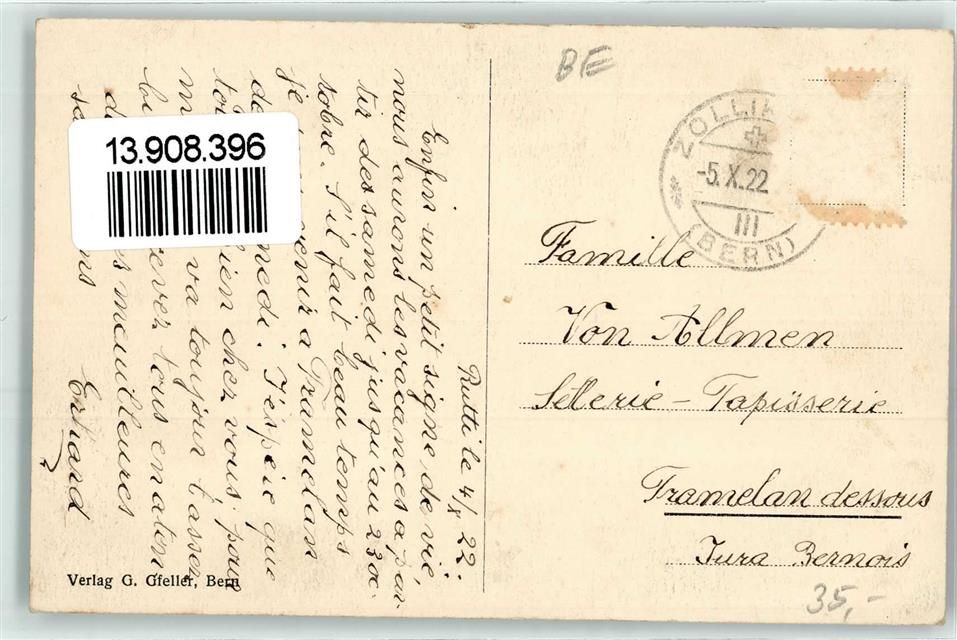 Rutti le 4/X 22.
Enfin un petit signe de vie
nous aurons les vacances a par-
tir des samedi jusqu'au 23 oc
tobre. S'il fait beau temps
je venir a Tramelan
medi. J'espére que
ien chez vous. pour
va toujour l'asser
tous en aten
meuilleures
Erhard
Verlag G. Gfeller, Bern
13.908.396
BE
ZOLLIK
-5.X.22
III
(BERN)
Famille
Von Allmen
Sellerie - Tapisserie
Tramelan dessous
Jura Bernois
35,-